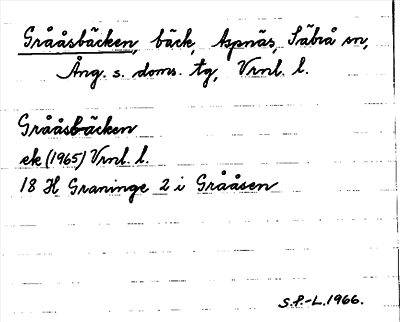 Grååsbäcken, bäck, Aspnäs, Säbrå sn,
Ång. s. doms. tg, Vrnl. l.
Grååsbäcken
ek (1965) Vrnl. l.
18 H Graninge 2 i Grååsen
S.P.-L. 1966.